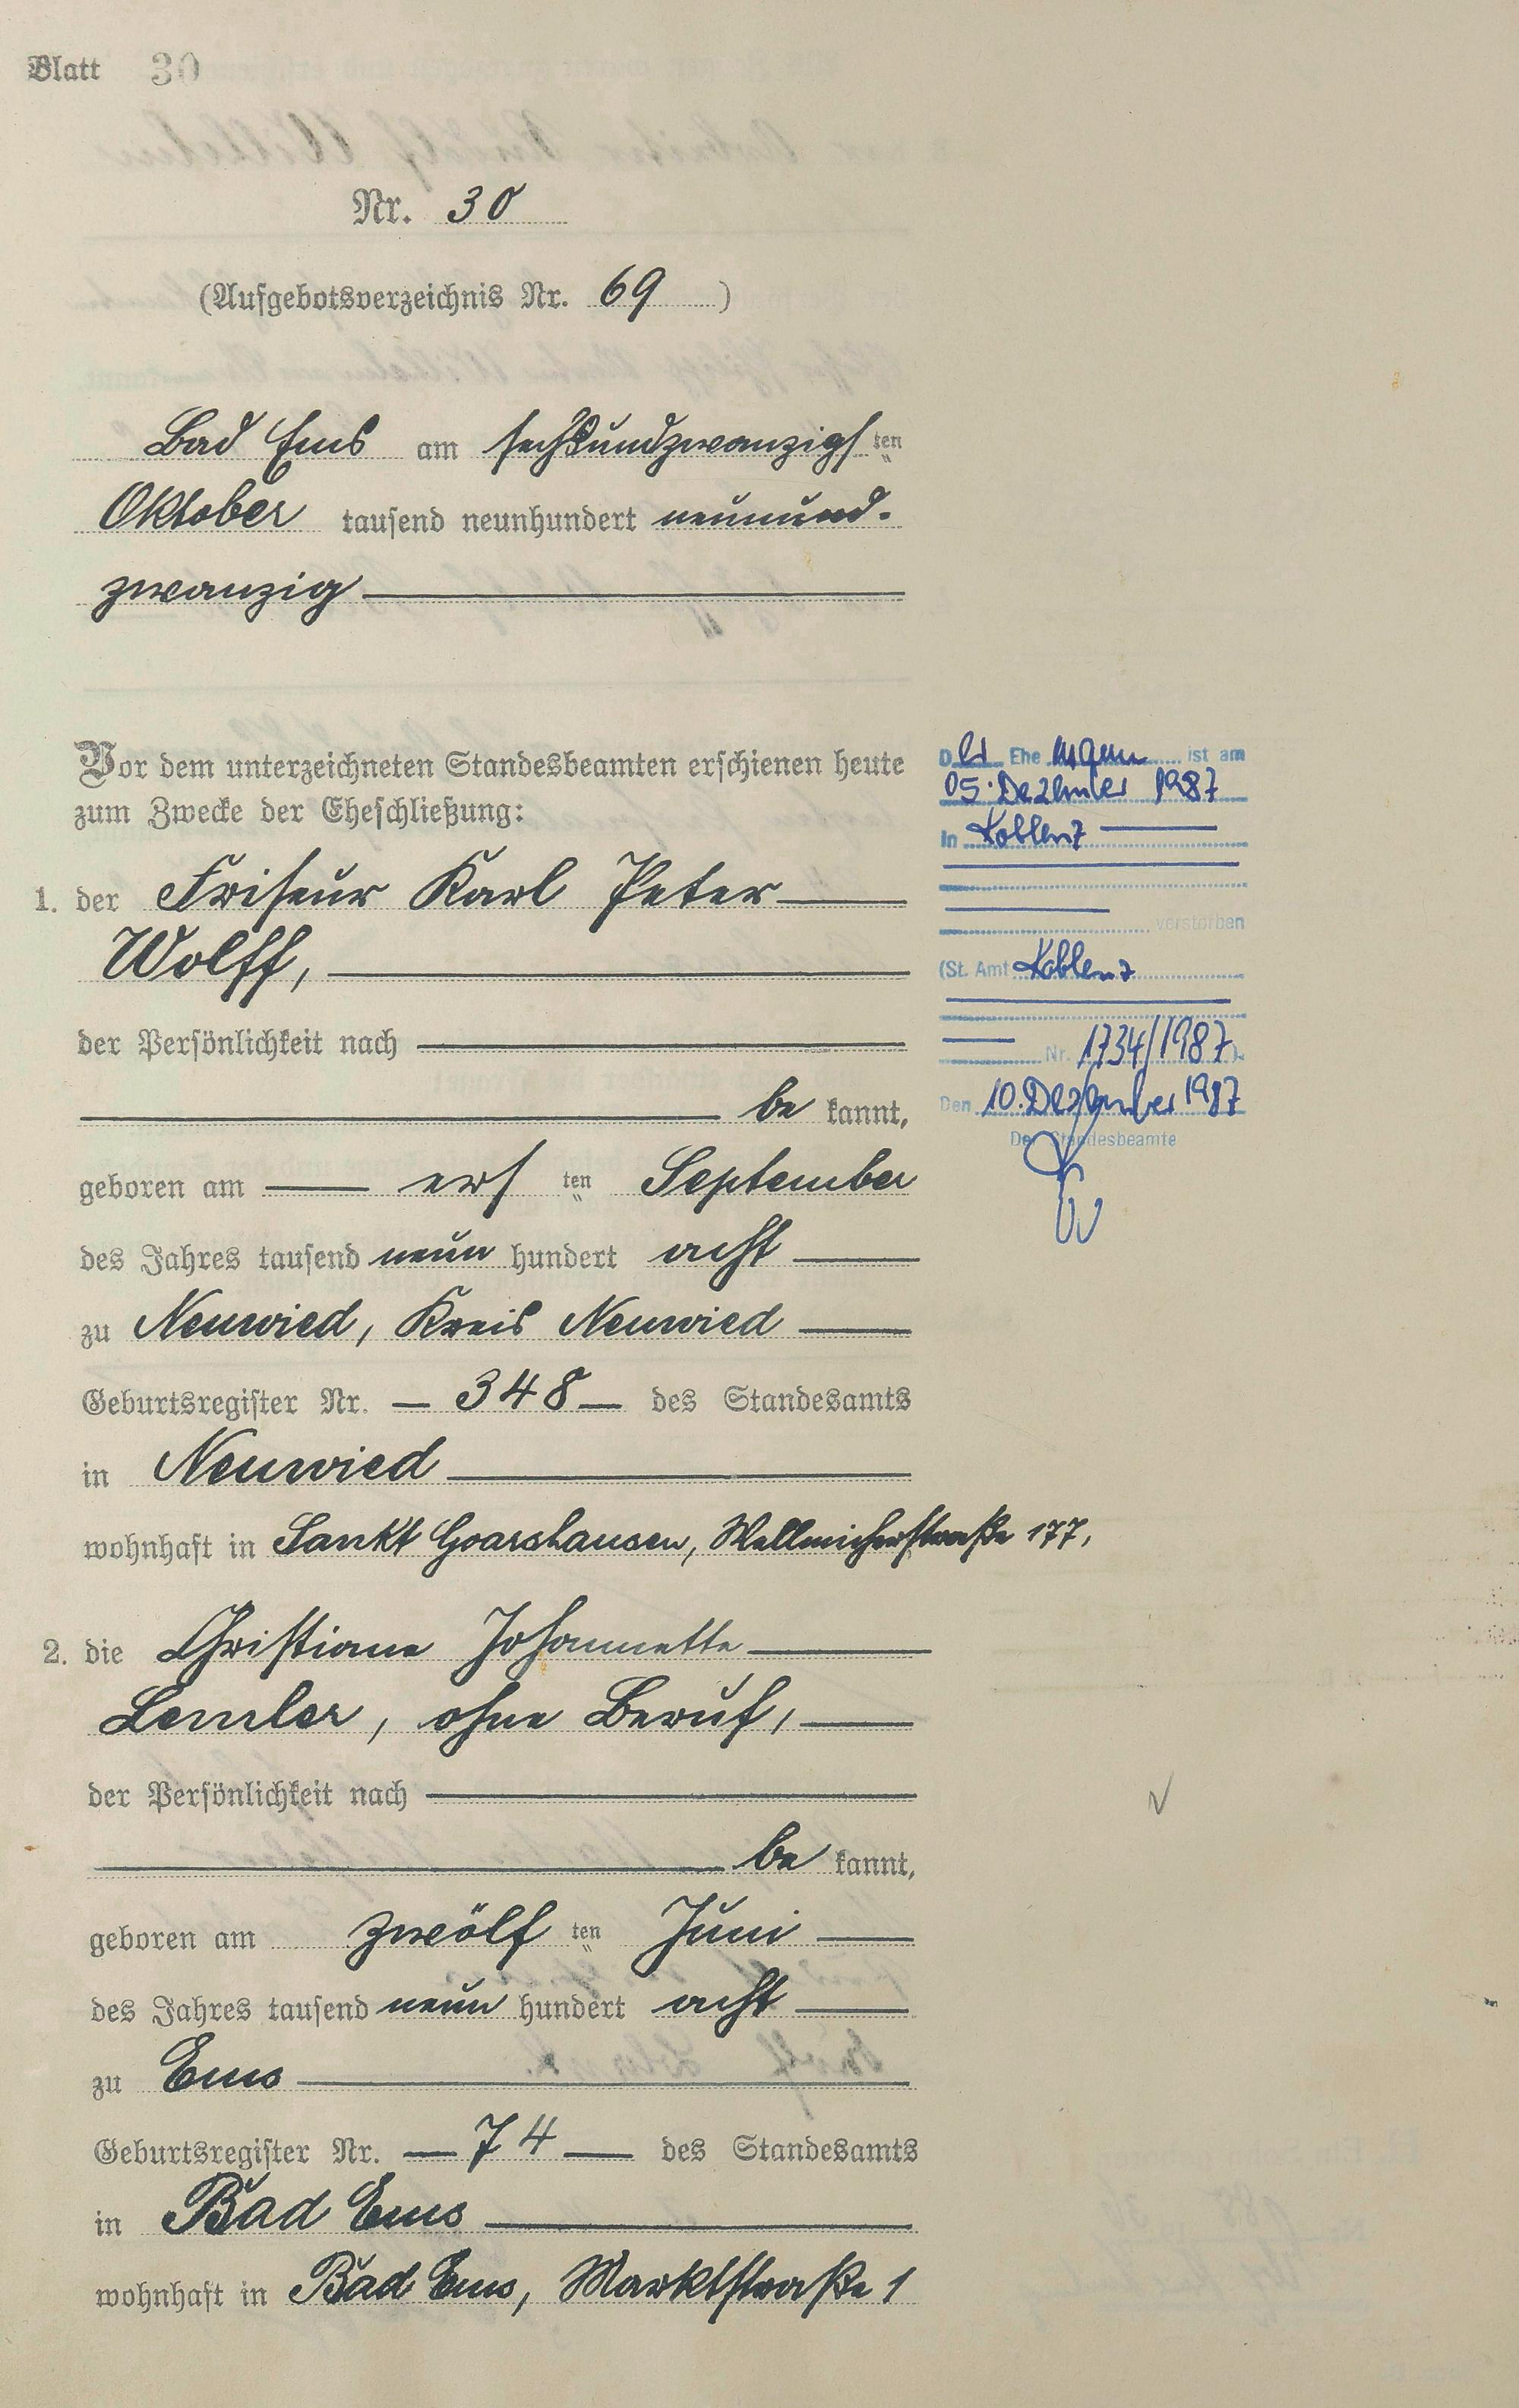 Blatt 30
Nr. 30
(Aufgebotsverzeichnis Nr. 69)
Bad Ems am sechsundzwanzigsten
Oktober tausend neunhundert neunund-
zwanzig
Vor dem unterzeichneten Standesbeamten erschienen heute
zum Zwecke der Eheschließung:
1. der Friseur Karl Peter
Wolff,
der Persönlichkeit nach
be kannt,
geboren am ersten September
des Jahres tausend neun hundert acht
zu Neuwied, Kreis Neuwied
Geburtsregister Nr. 348 des Standesamts
in Neuwied
wohnhaft in Sankt Goarshausen, Wellmicherstraße 177,
2. die Christiane Johannette
Lemler, ohne Beruf,
der Persönlichkeit nach
be kannt,
geboren am zwölften Juni
des Jahres tausend neun hundert acht
zu Ems
Geburtsregister Nr. 74 des Standesamts
in Bad Ems
wohnhaft in Bad Ems, Marktstraße 1
Der Ehemann ist am
05. Dezember 1987
In Koblenz
verstorben
(St. Amt Koblenz
Nr. 1734/1987).
Den 10. Dezember 1987
Der Standesbeamte